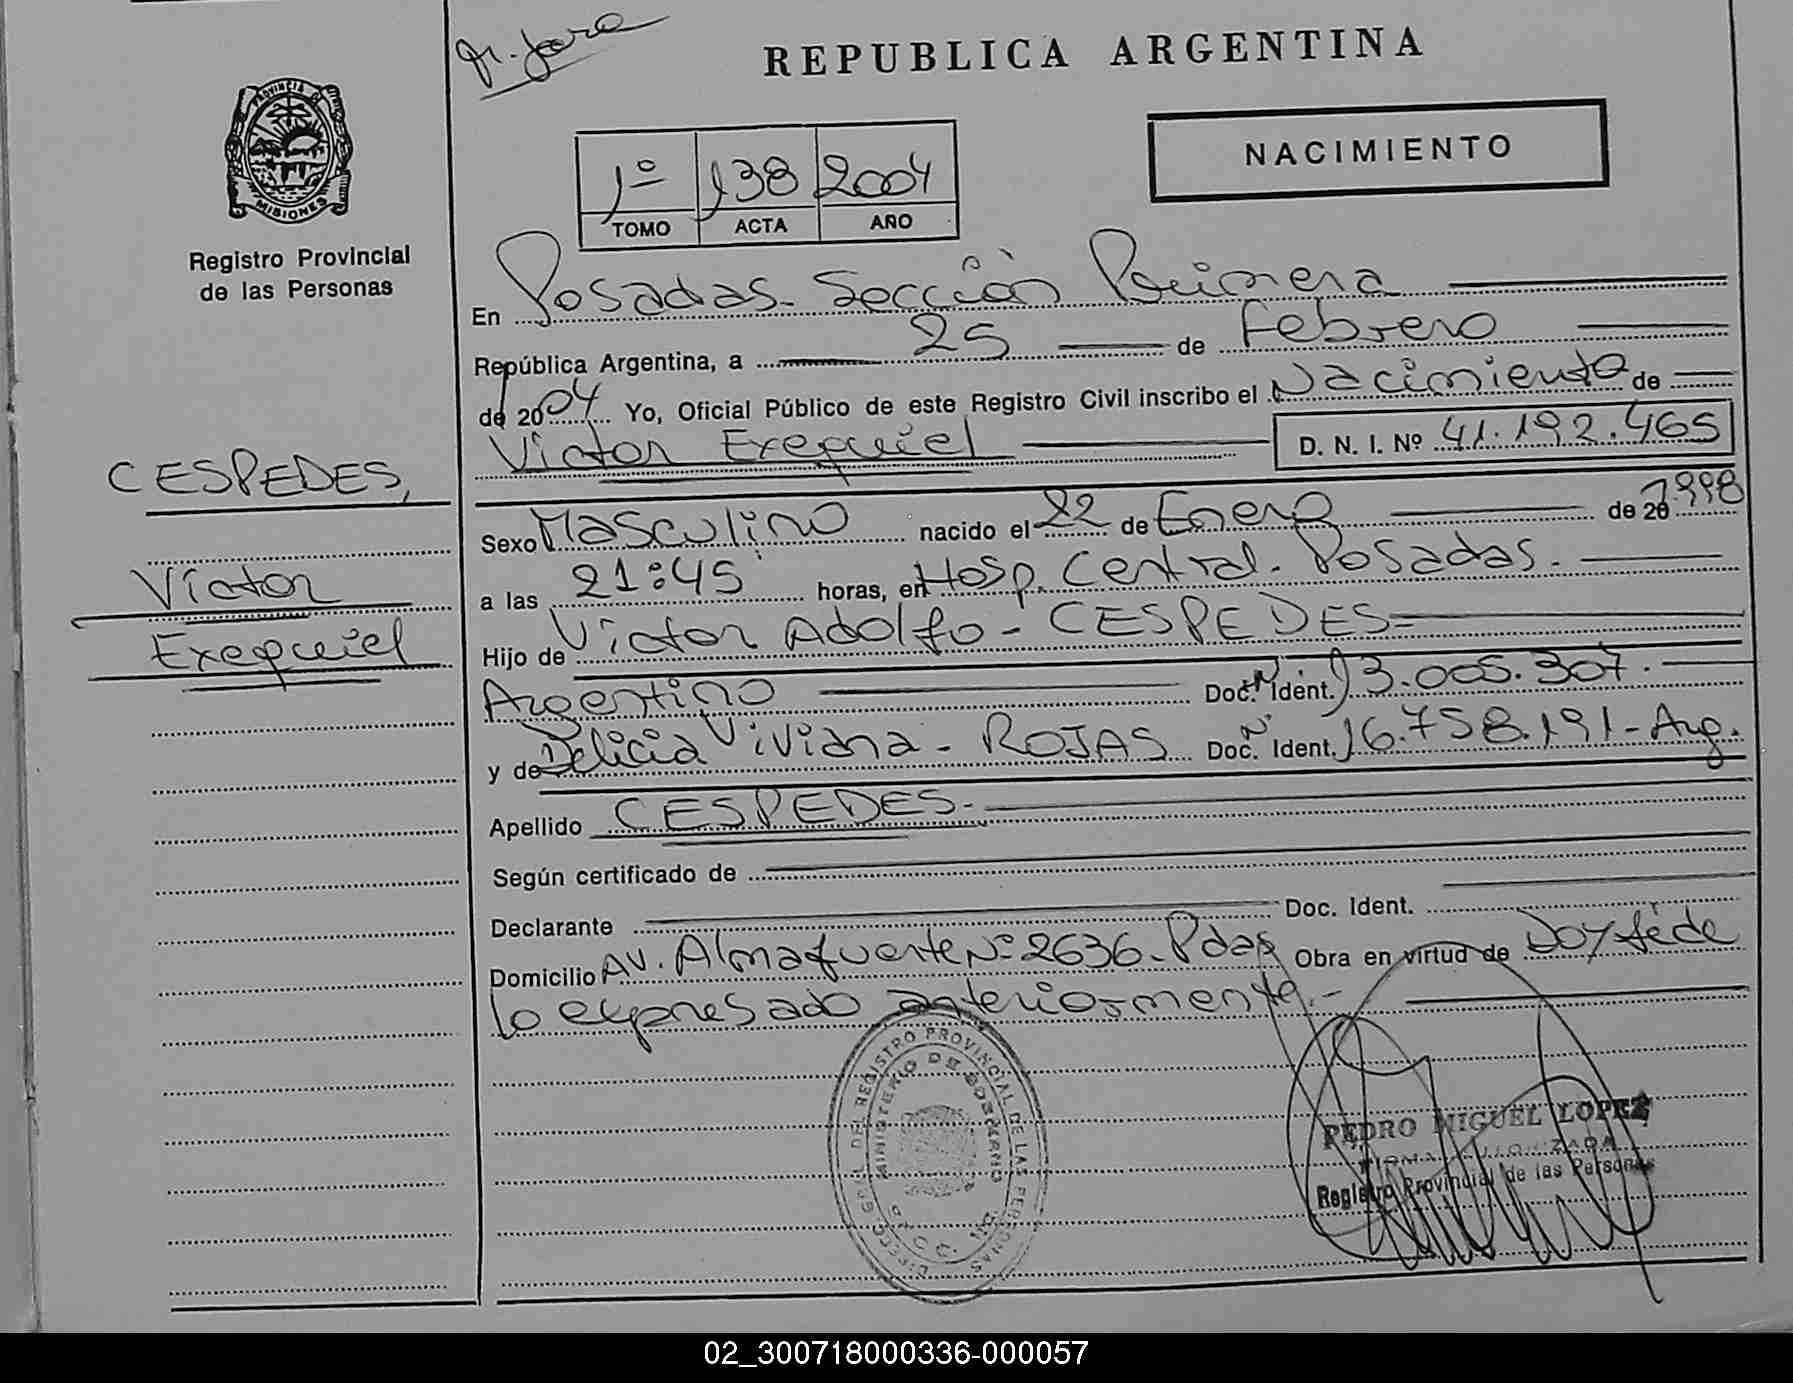 REPUBLICA ARGENTINA
PROVINCIA DE
MISIONES
Registro Provincial
de las Personas
NACIMIENTO
1º 138 2004
TOMO ACTA AÑO
En Posadas - Sección Primera
República Argentina, a 25 de Febrero
de 2004 Yo, Oficial Público de este Registro Civil inscribo el Nacimiento de
Víctor Exequiel D. N. I. Nº 41.192.465
CESPEDES,
Víctor
Exequiel
Sexo Masculino nacido el 22 de Enero de 20 1998
a las 21:45 horas, en Hosp. Central - Posadas.
Hijo de Víctor Adolfo - CESPEDES
Argentino Doc. Ident. 13.005.307.
y de Delicia Viviana - ROJAS Doc. Ident. 16.758.191 - Arg.
Apellido CESPEDES -
Según certificado de
Declarante Doc. Ident.
Domicilio AV. Almafuerte Nº 2636 - Pdas Obra en virtud de Doy fé de
lo expresado anteriormente. -
REGISTRO PROVINCIAL DE LAS PERSONAS
MINISTERIO DE GOBIERNO
PEDRO MIGUEL LOPEZ
FIRMA AUTORIZADA
Registro Provincial de las Personas
02_300718000336-000057